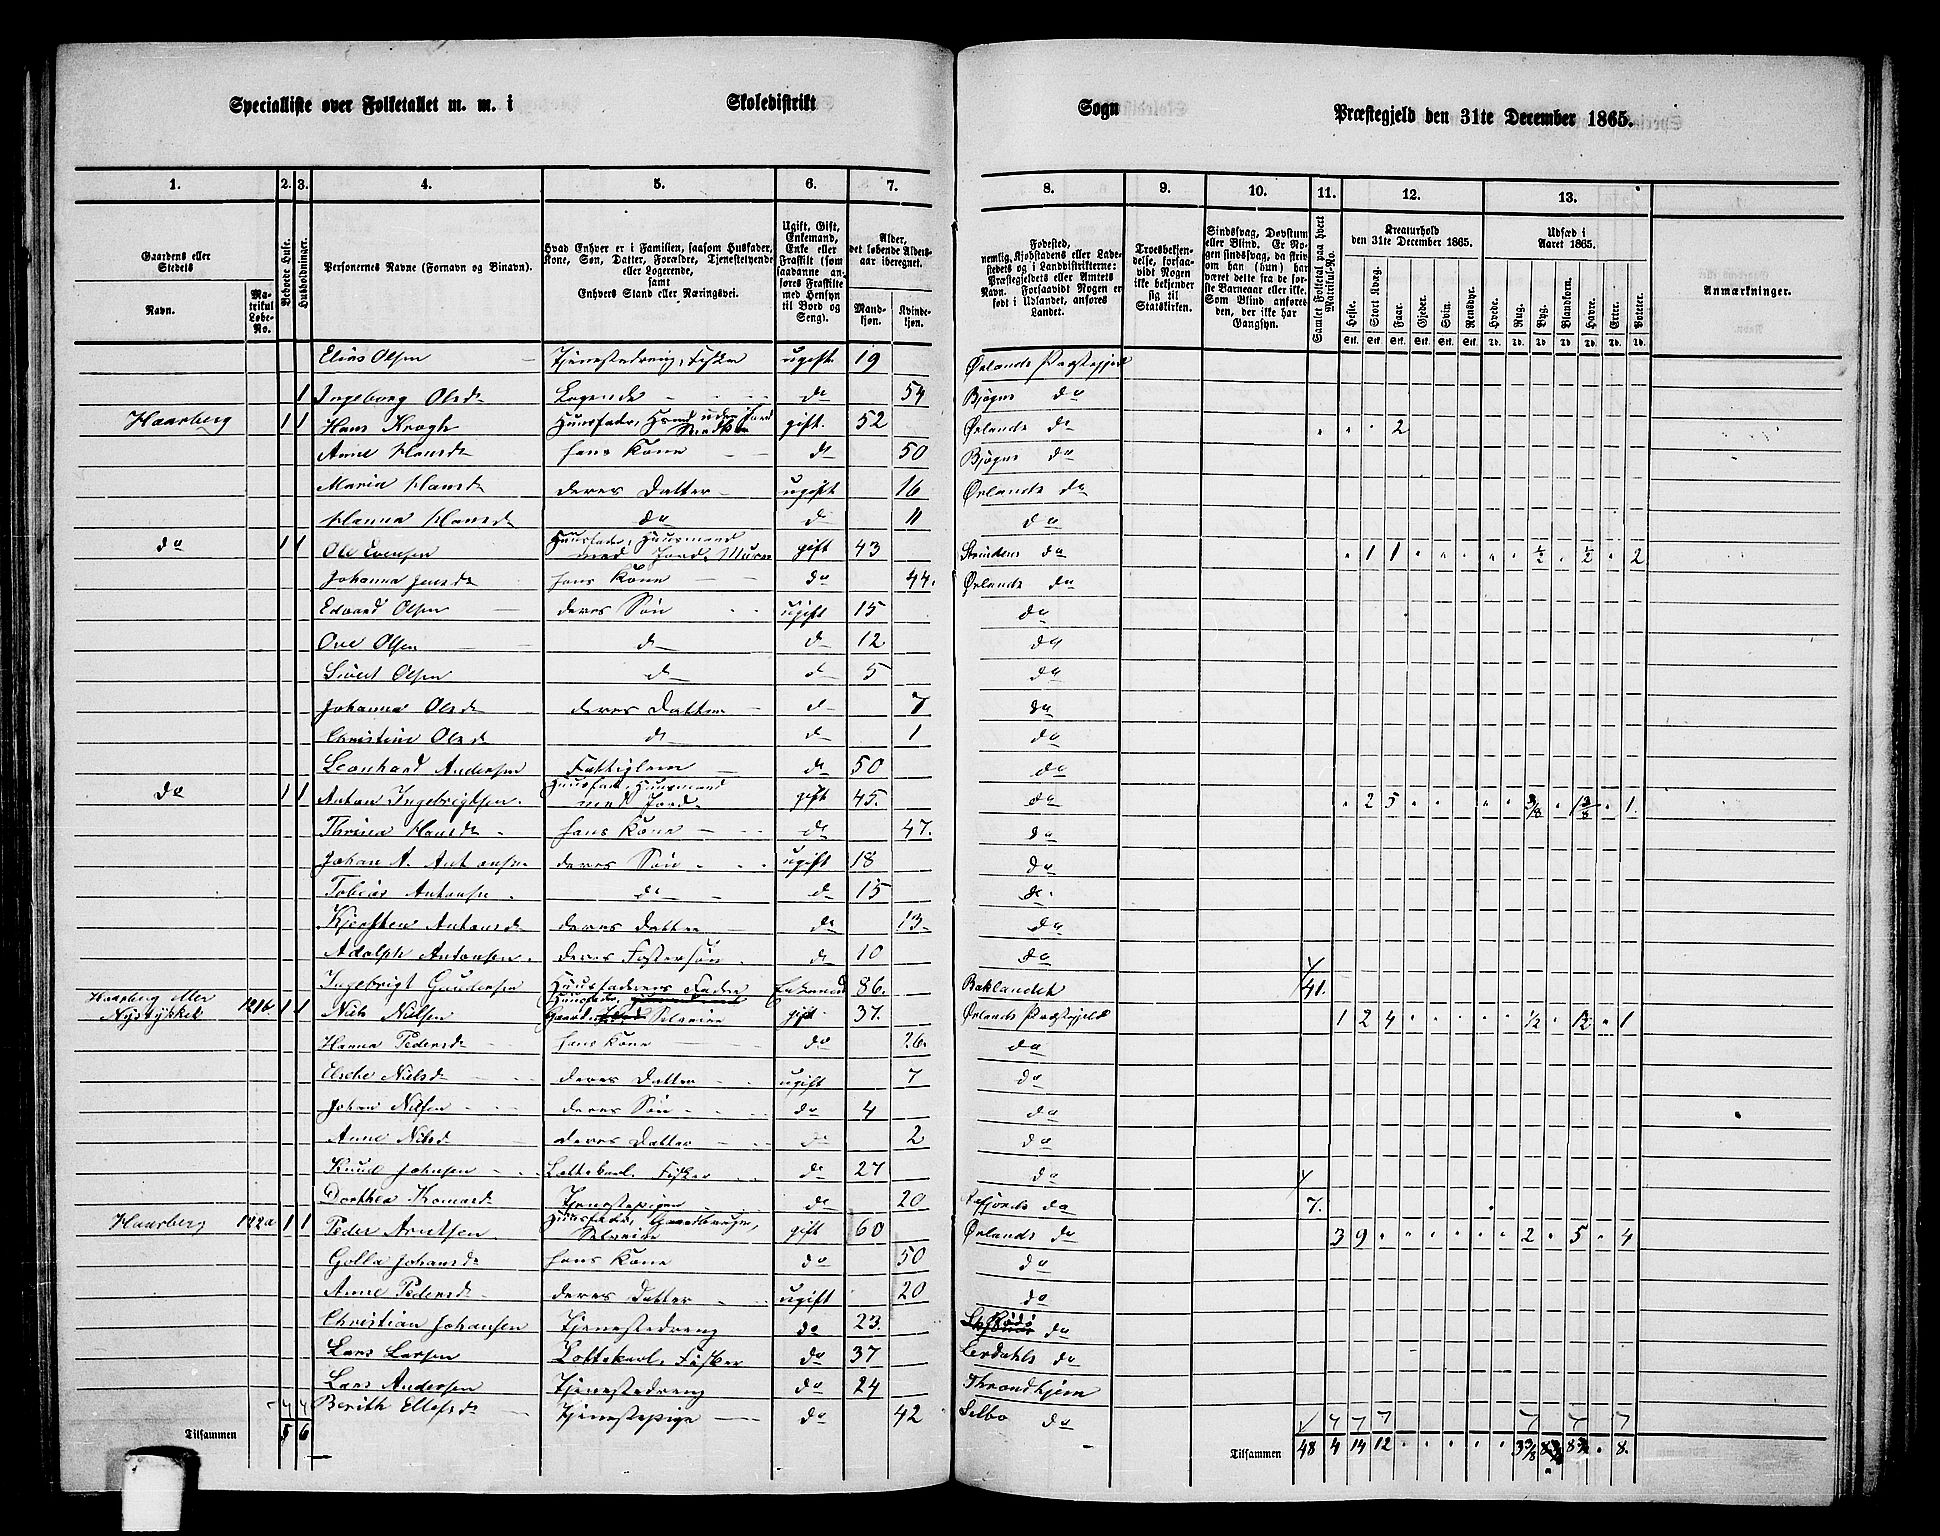 Specialliste over Folketallet m. m. i Skoledistrikt Sogn Præstegjeld den 31te December 1865.
1. 2. 3. 4. 5. 6. 7. 8. 9. 10. 11. 12. 13.
Gaardens eller Stedets
Navn.
Matrikul Løbe-No.
Beboede Huse.
Husholdninger.
Personernes Navne (Fornavn og Binavn).
Hvad Enhver er i Familien, saasom Husfader, Kone, Søn, Datter, Forældre, Tjenestetyende eller Logerende, samt Enhvers Stand eller Næringsvei.
Ugift, Gift, Enkemand, Enke eller Fraskilt (som saadanne anføres Fraskilte med Hensyn til Bord og Seng).
Alder, det løbende Aldersaar iberegnet.
Mandkjøn.
Kvindekjøn.
Fødested, nemlig, Kjøbstadens eller Ladestedets og i Landdistrikterne: Præstegjeldets eller Amtets Navn. Forsaavidt Nogen er født i Udlandet, anføres Landet.
Troesbekjendelse, forsaavidt Nogen ikke bekjender sig til Statskirken.
Sindssvag, Døvstum eller Blind. Er Nogen sindssvag, da skrives om han (hun) har været dette fra de første Barneaar eller ikke. Som Blind anføres den, der ikke har Gangsyn.
Samlet Folketal paa hvert Matrikul-No.
Kreaturhold den 31te December 1865.
Heste. Stort Kvæg. Faar. Gjeder. Svin. Rensdyr.
Udsæd i Aaret 1865.
Hvede. Rug. Byg. Blandkorn. Havre. Erter. Poteter.
Anmærkninger.
Elias Olsen Tjenestedreng, Fisker ugift 19 Ørlands Præstegjeld
1 Ingeborg Olsd Logerende do 54 Bjøgns do
Haarberg 1 1 Hans Krogh Huusfader, Huusmd uden Jord gift 52 Ørlands do 2
Anne Hansd hans Kone do 50 Bjøgns do
Maria Hansd deres Datter ugift 16 Ørlands do
Hanna Hansd do do 11 do
do 1 1 Ole Evensen Huusfader, Huusmand med Jord, Murer gift 43 Strindens do 1 1 ½ ½ 2
Johanna Jensd hans Kone do 44. Ørlands do
Edvard Olsen deres Søn ugift 15 do
Ove Olsen do do 12 do
Sivert Olsen do do 5 do
Johanna Olsd deres Datter do 7 do
Christine Olsd do do 1 do
Leonhard Andersen Fattiglem do 50 do
do 1 1 Anton Ingebrigtsen Huusfader, Huusmand med Jord gift 45. do 2 5 3/8 1 3/8 1.
Thrina Hansd hans Kone do 47. do
Johan A. Antonsen deres Søn ugift 18 do
Tobias Antonsen do do 15 do
Kjersten Antonsd deres Datter do 13. do
Adolph Antonsen deres Fostersøn do 10 do
Ingebrigt Gundersen Huusfaderens Fader Enkemand 86. Baklandet 41.
Haarberg eller Nystykket 121b 1 1 Niels Nielsen Huusfader, Gaardbr. Selveier gift 37. Ørlands Præstegjeld 1 2 4 ½ 1½ 1
Hanna Pedersd hans Kone do 26. do
Elsebe Nielsd deres Datter ugift 7 do
Johan Nilsen deres Søn do 4 do
Anne Nilsd deres Datter do 2 do
Knud Johnsen Lottekarl, Fisker do 27 do
Dorthea Tjenestepige do 20 do 7.
Haarberg 122a 1 1 Peder Arntsen Huusfader, Gaardbruger, Selveier gift 60 Ørlands do 3 9 2 5 4
Golla Johansd hans Kone do 50 do
Anne Pedersd deres Datter ugift 20 do
Christian Johansen Tjenestedreng do 23. do
Lars Larsen Lottekarl, Fisker do 37 Lerdahls do
Lars Andersen Tjenestedreng do 24 Throndhjem
Berith Ellefsd Tjenestepige do 42 Selbo do
Tilsammen 5 6 Tilsammen 48 4 14 12 3 3/8 8. 8.